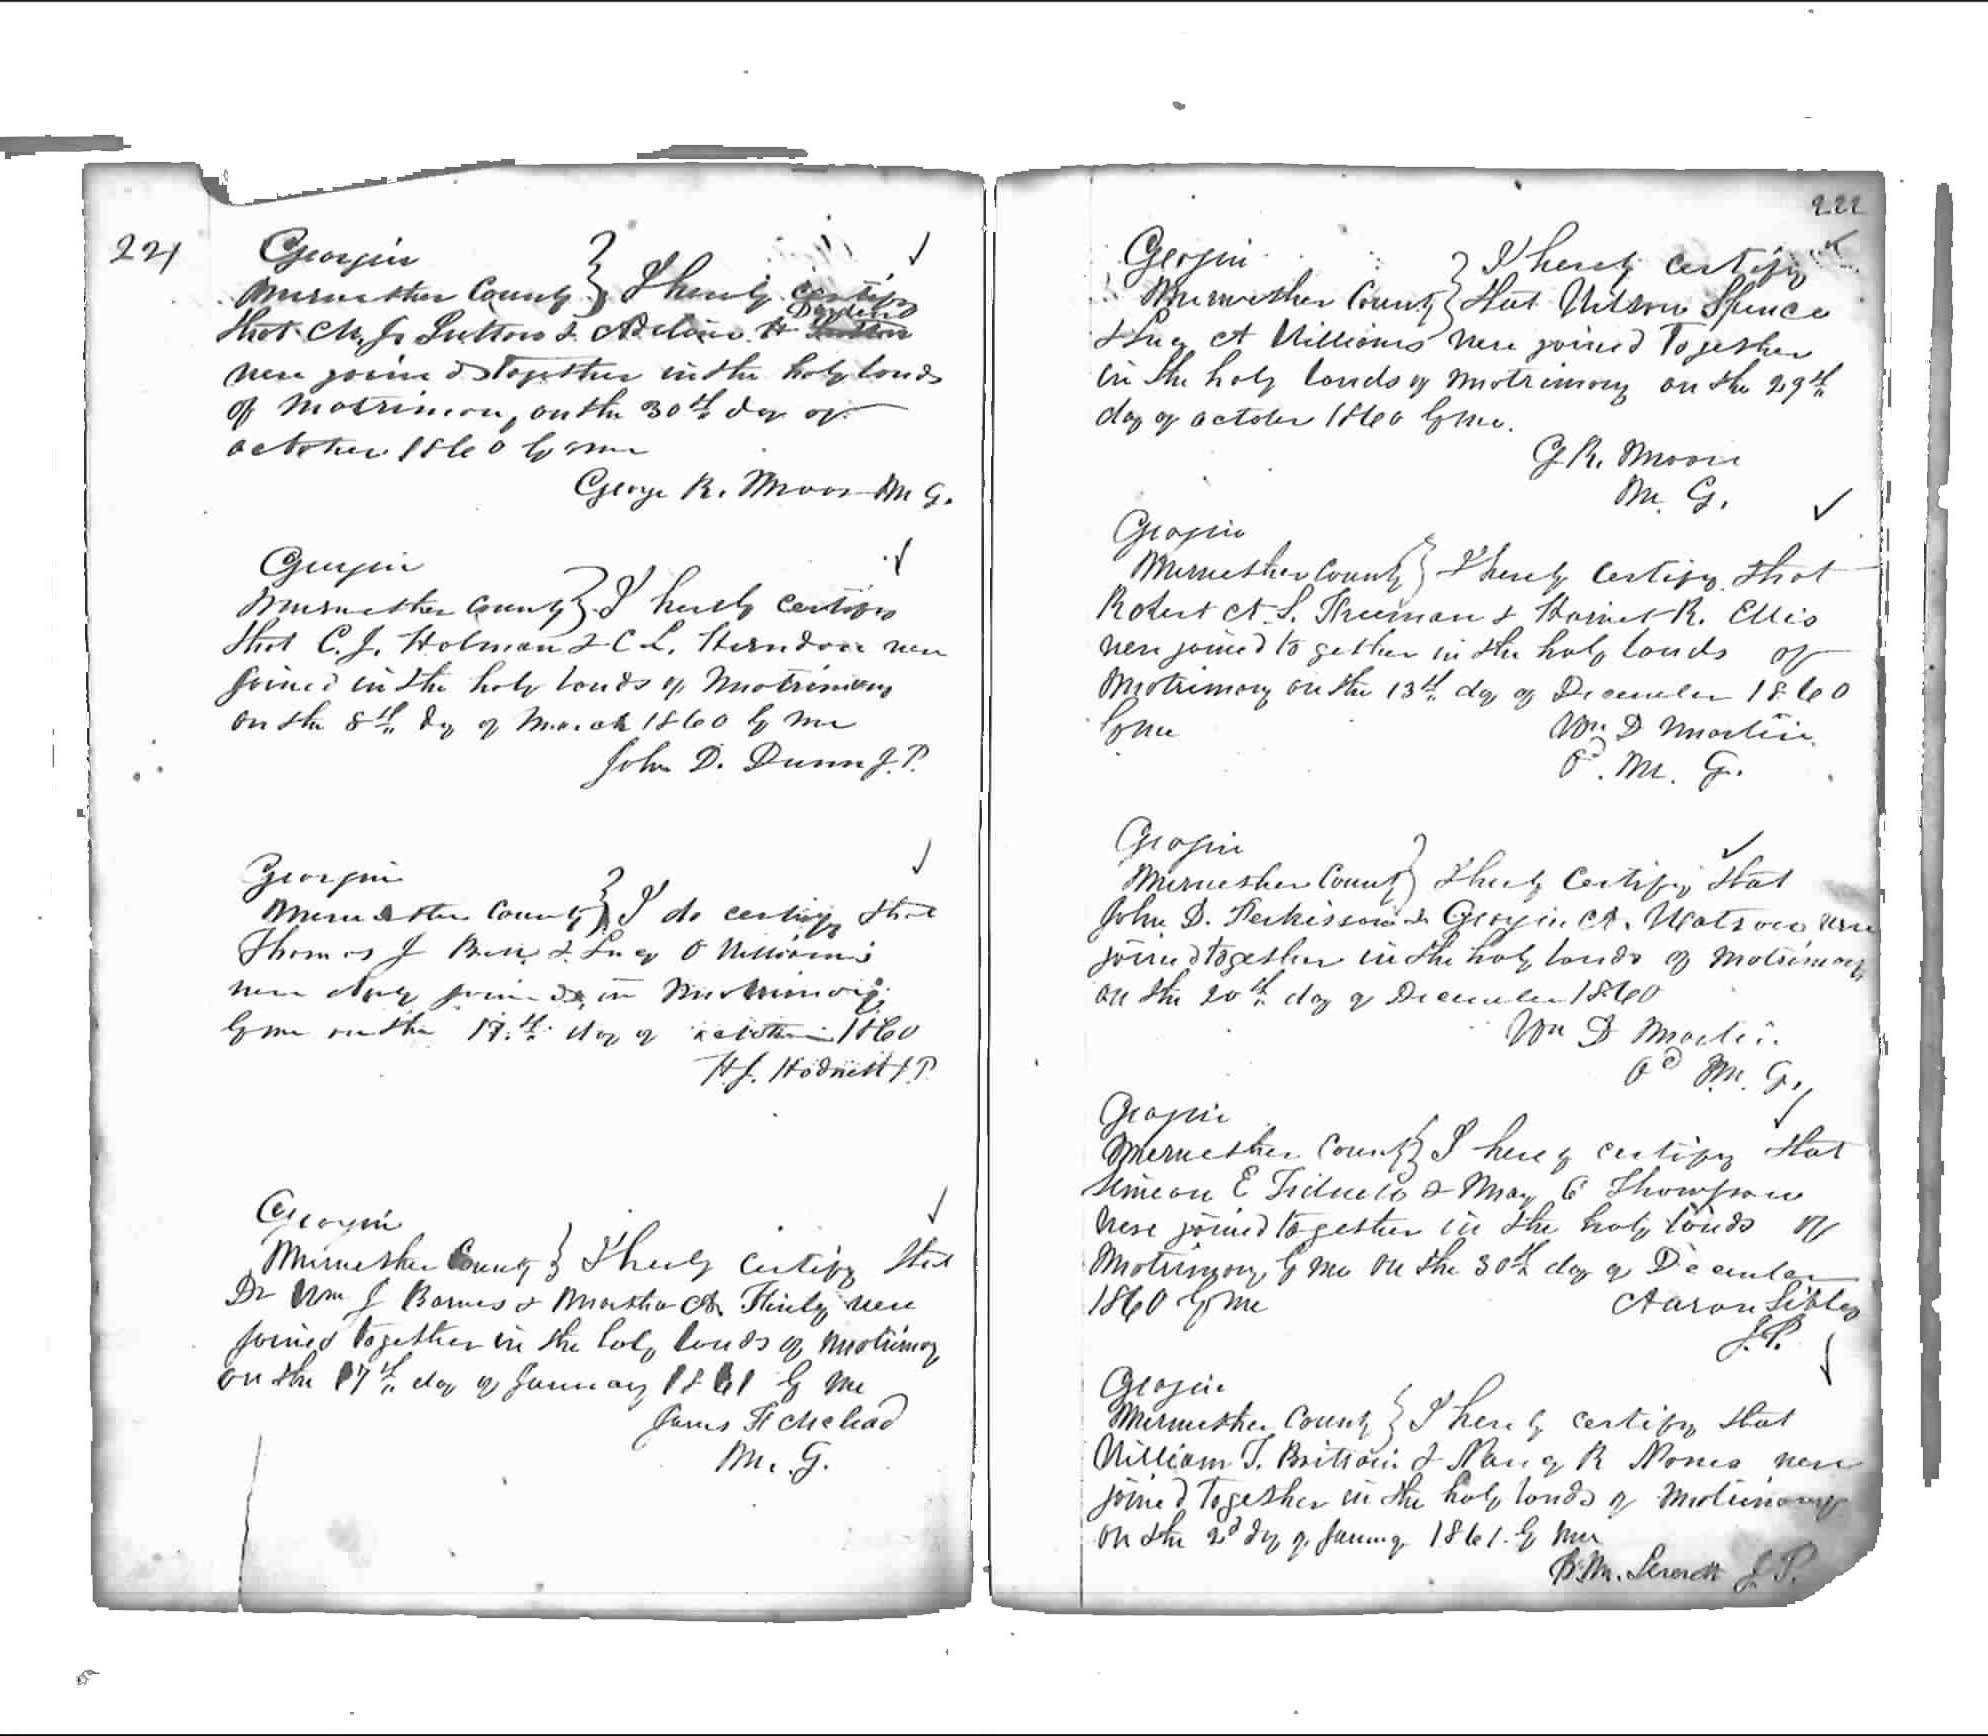 221
Georgia
Meriwether County } I hereby certify
that M. J. Sutton & Adeline H Darden
were joined together in the holy bonds
of Matrimony on the 30th day of
October 1860 by me
George R. Moore M G.
Georgia
Meriwether County } I hereby certify
that C. J. Holman & C L. Herndon were
joined in the holy bonds of Matrimony
on the 8th day of March 1860 by me
John D. Dunn J. P.
Georgia
Meriwether County } I do certify that
Thomas J & Lucy O Williams
were duly joined in Matrimony
by me on the 17th day of October 1860
H. J. Hodnett J. P.
Georgia
Meriwether County } I hereby certify that
Dr Wm J Barnes & Martha A. were
joined together in the holy bonds of Matrimony
on the 17th day of January 1861 by me
James H McLeod
M. G.
222
Georgia
Meriwether County } I hereby certify
that Wilson Spence
& Lucy A Williams were joined Together
in the holy bonds of Matrimony on the 29th
day of October 1860 by me.
G R. Moore
M. G.
Georgia
Meriwether County } I hereby certify that
Robert A. S. Freeman & Harriet R. Ellis
were joined together in the holy bonds of
Matrimony on the 13th day of December 1860
by me
Wm D Martin
Od. M. G.
Georgia
Meriwether County } I hereby certify that
John D. Perkisson & Georgia A. Watson were
joined together in the holy bonds of Matrimony
on the 20th day of December 1860
Wm D Martin
Od M. G.
Georgia
Meriwether County } I hereby certify that
Simeon E & Mary E Thompson
were joined together in the holy bonds of
Matrimony by me on the 30th day of December
1860 by me
Aaron Sibley
J. P.
Georgia
Meriwether County } I hereby certify that
William T. Brittain & Nancy R were
joined together in the holy bonds of Matrimony
on the 2d day of January 1861. by me
M. Leverett J. P.